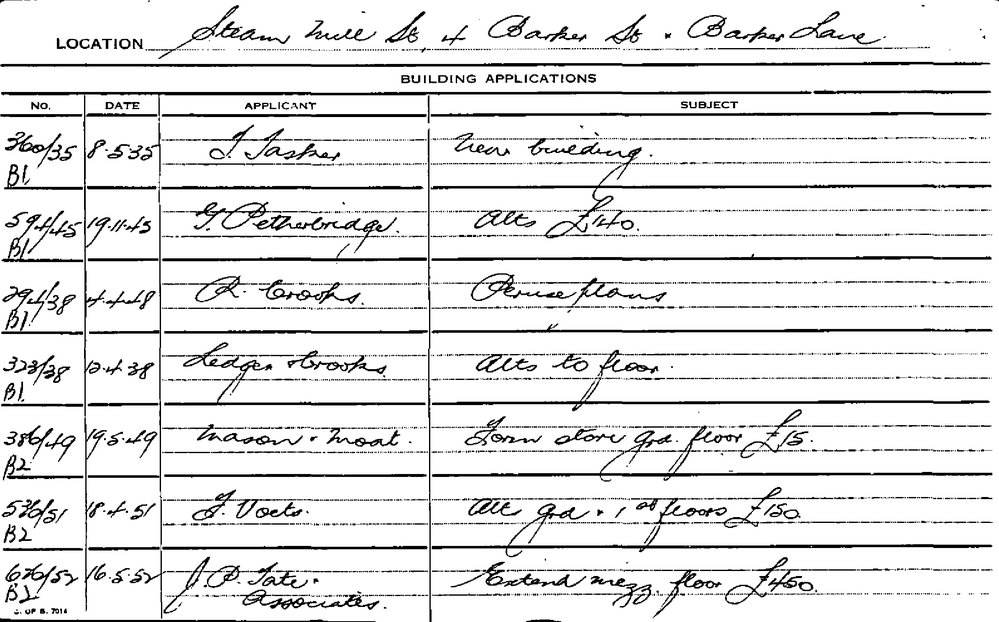 LOCATION Steam Mill St, 4 Barker St & Barker Lane.
BUILDING APPLICATIONS
NO. DATE APPLICANT SUBJECT
360/35 8.5.35 J. Tasker New building.
B1
594/45 19.11.45 G. Petherbridge. Alts £140.
B1
294/38 4.4.48 R. Crooks. Peruse plans
B1
323/38 12.4.38 Ledger & Crooks. Alts to floor.
B1
386/49 19.5.49 Mason & Moat. Form store grd. floor £15.
B2
536/51 18.4.51 J. Voets. Alt grd & 1st floors £150.
B2
676/52 16.5.52 J. P. Tate & Extend mezz. floor £450.
B2 Associates.
C. OF S. 7014